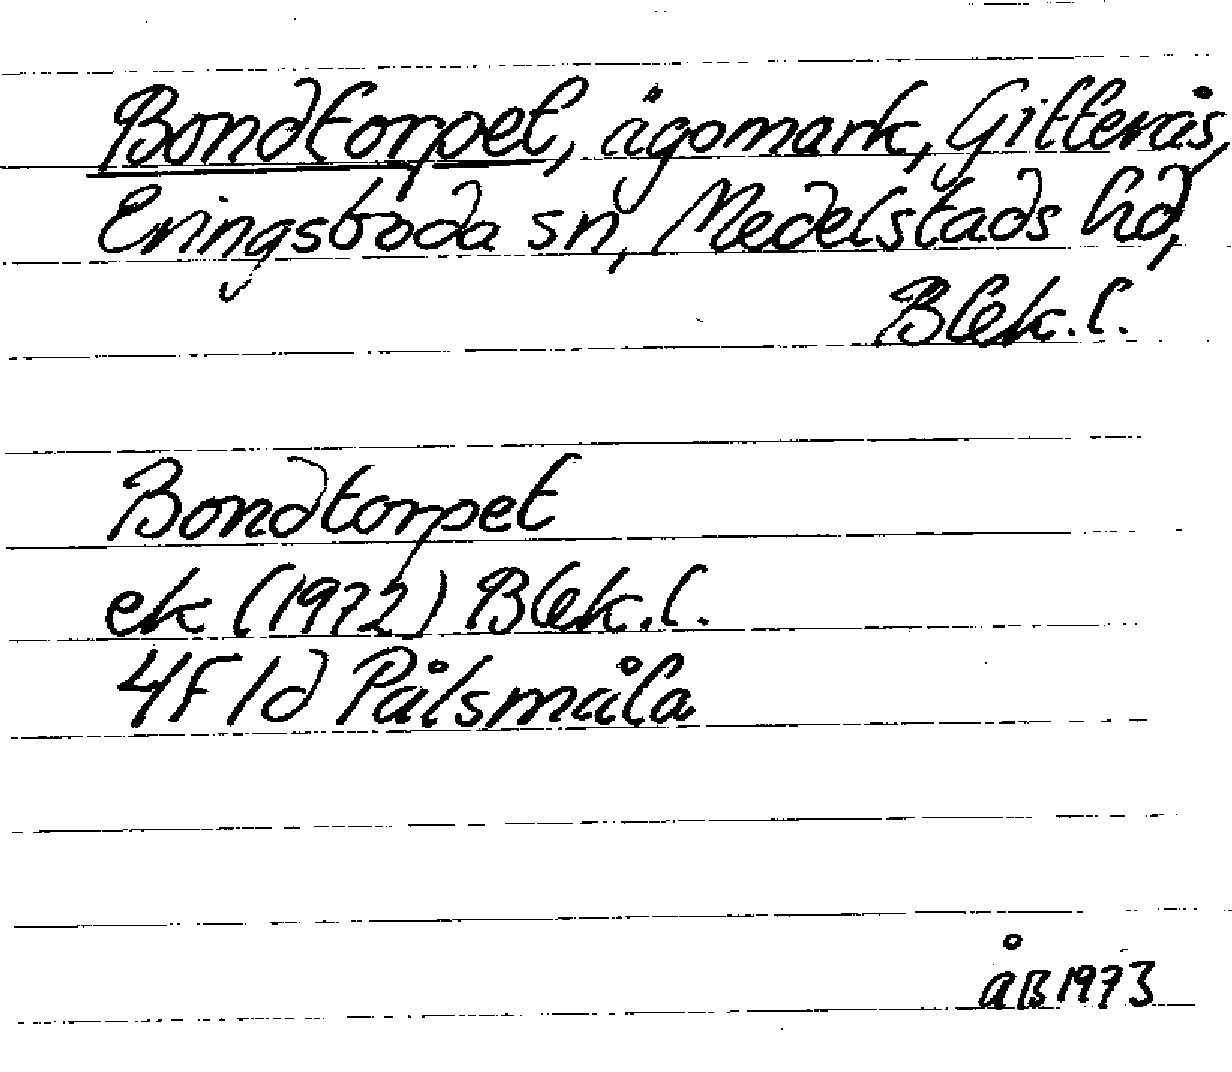 Bondtorpet, ägomark, Gitterås,
Eringsboda sn, Medelstads hd,
Blek.l.
Bondtorpet
ek (1972) Blek.l.
4F 1d Pålsmåla
ÅB 1973